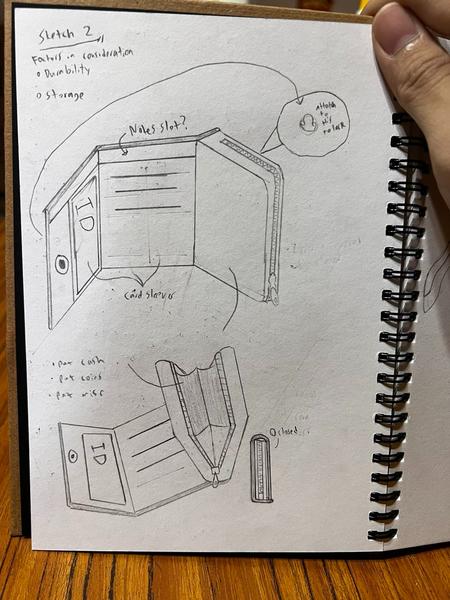 Sketch 2
Factors in consideration
Durability
Storage
Notes slot?
Attach
to
this
to lock
ID
Card sleeves
• put cash
• put coins
• put misc
ID
closed